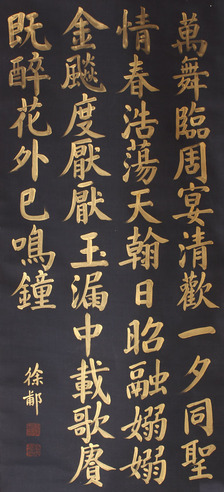 萬舞臨周宴清歡一夕同聖
情春浩蕩天翰日昭融嫋嫋
金飈度厭厭玉漏中載歌賡
既醉花外已鳴鐘
徐郙